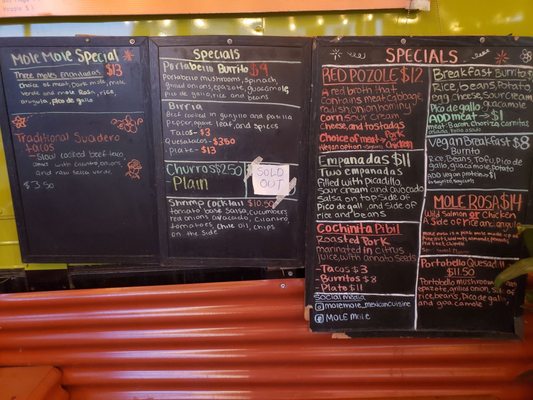 Mole Mole Special
Three moles enchiladas $13
Choice of meat, Pork, mole
verde and mole Rosa, rice,
arugula, pico de gallo
Traditional Suadero
tacos
Slow cooked beef taco
and raw salsa verde
$3.50
Specials
Portabello Burrito $9
Portabello mushrooms, spinach,
grilled onions, epazote, guacamole
pico de gallo, rice and beans
Birria
Beef cooked in guajillo and
pepper, leaf, and spices
Tacos - $3
Quesatacos - $3.50
Plate - $13
Churros $2.50
-Plain
SOLD
OUT
Shrimp Cocktail $10.50
tomato base salsa, cucumbers
red onions, avocado, cilantro,
tomatoes, Chile oil, chips
on the side
SPECIALS
RED POZOLE $12
A red broth that
contains meat, cabbage
radish, onion, hominy
corn, sour cream
Cheese, and tostadas
Choice of meat - Pork
Vegan option Chicken
Empanadas $11
Two empanadas
filled with picadillo,
sour cream and avocado
salsa on top. Side of
Pico de gallo, and side of
rice and beans
Cochinita Pibil
Roasted Pork
marinated in citrus
juice, with annatto seeds
- Tacos $3
- Burritos $8
- Plate $11
Social Media
molemole_mexicancuisine
Mole Mole
Breakfast Burrito $8
Rice, beans, Potato
egg, cheese, Sour cream
Pico de gallo, guacamole
ADD meat → $1
meat: Bacon, Chorizo, carnitas
Vegan Breakfast $8
Burrito
Rice, Beans, Tofu, Pico de
gallo, guacamole, potato
ADD vegan protein $1
MOLE ROSA $14
Wild Salmon or Chicken
A side of rice and
Portabello Quesadilla
$11.50
Portabello mushrooms
epazote, grilled onion. Side of
rice, beans, Pico de gallo
and guacamole